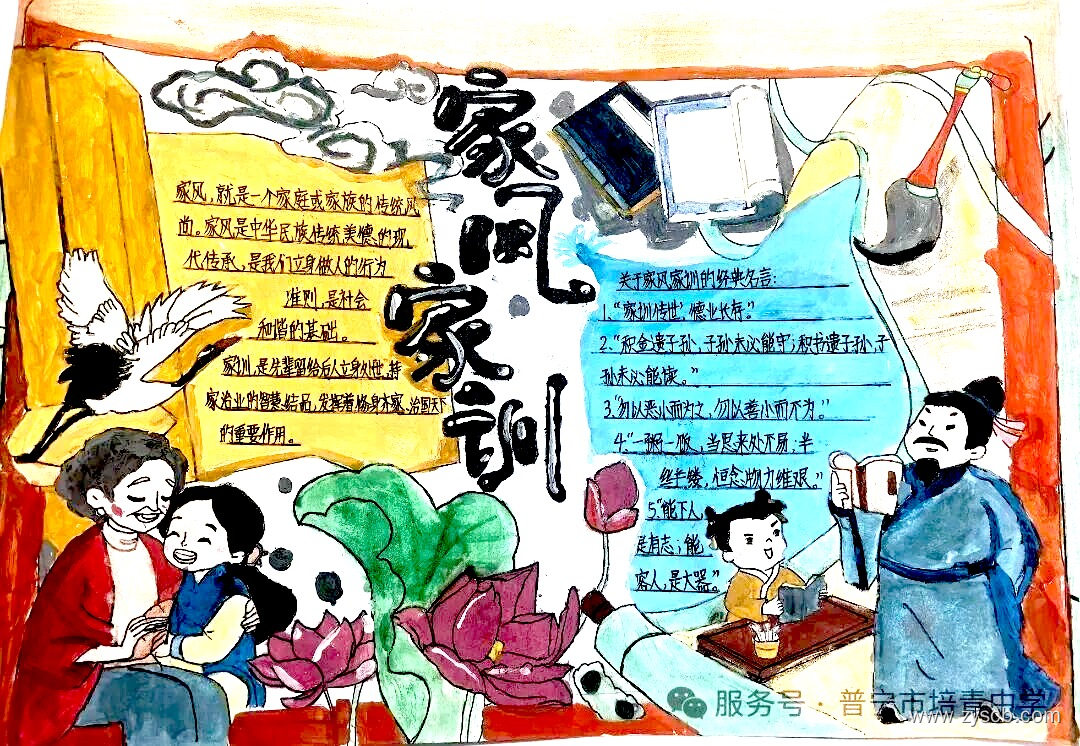 家风家训
家风，就是一个家庭或家族的传统风
尚。家风是中华民族传统美德的现
代传承，是我们立身做人的行为
准则，是社会
和谐的基础。
家训，是先辈留给后人立身处世、持
家治业的智慧结晶，发挥着修身齐家、治国天下
的重要作用。
关于家风家训的经典名言：
1、“家训传世，德业长存。”
2、“积金遗子孙，子孙未必能守；积书遗子孙，子
孙未必能读。”
3、“勿以恶小而为之，勿以善小而不为。”
4、“一粥一饭，当思来处不易，半
丝半缕，恒念物力维艰。”
5、“能下人，
是有志；能
容人，是大器。”
服务号·普宁市培青中学
www.zyscb.com